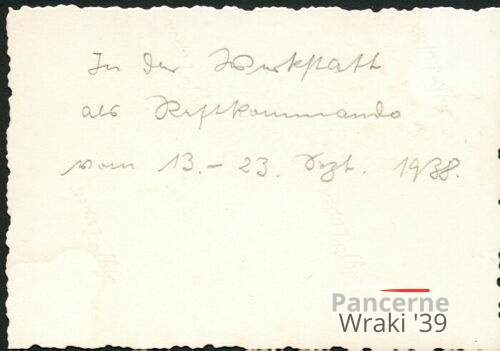 In der Werkstatt
als Restkommando
vom 13. – 23. Sept. 1938.
Pancerne
Wraki '39